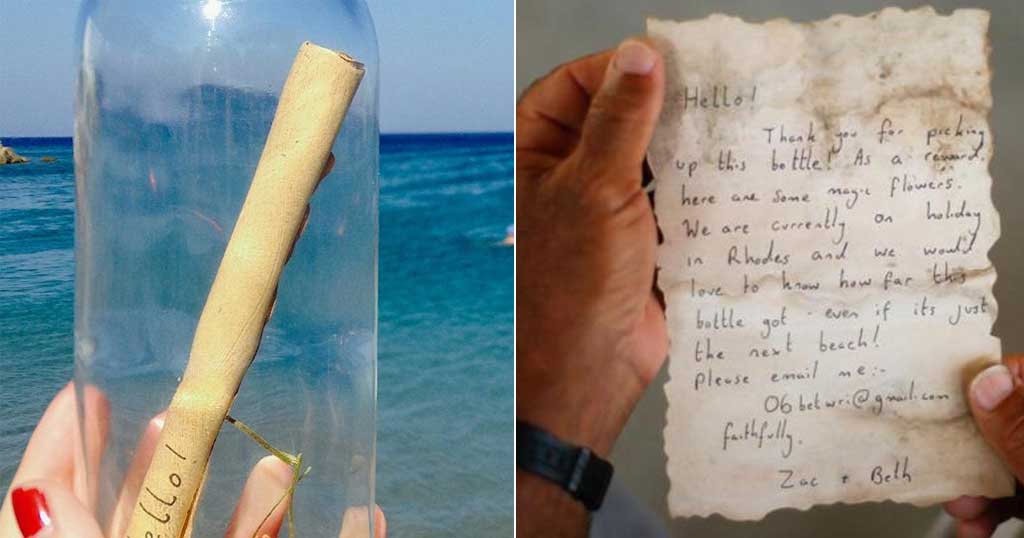 ello!
Hello!
Thank you for picking
up this bottle! As a reward,
here are some magic flowers.
We are currently on holiday
in Rhodes and we would
love to know how far this
bottle got - even if its just
the next beach!
Please email me:-
06betwri@gmail.com
faithfully,
Zac + Beth